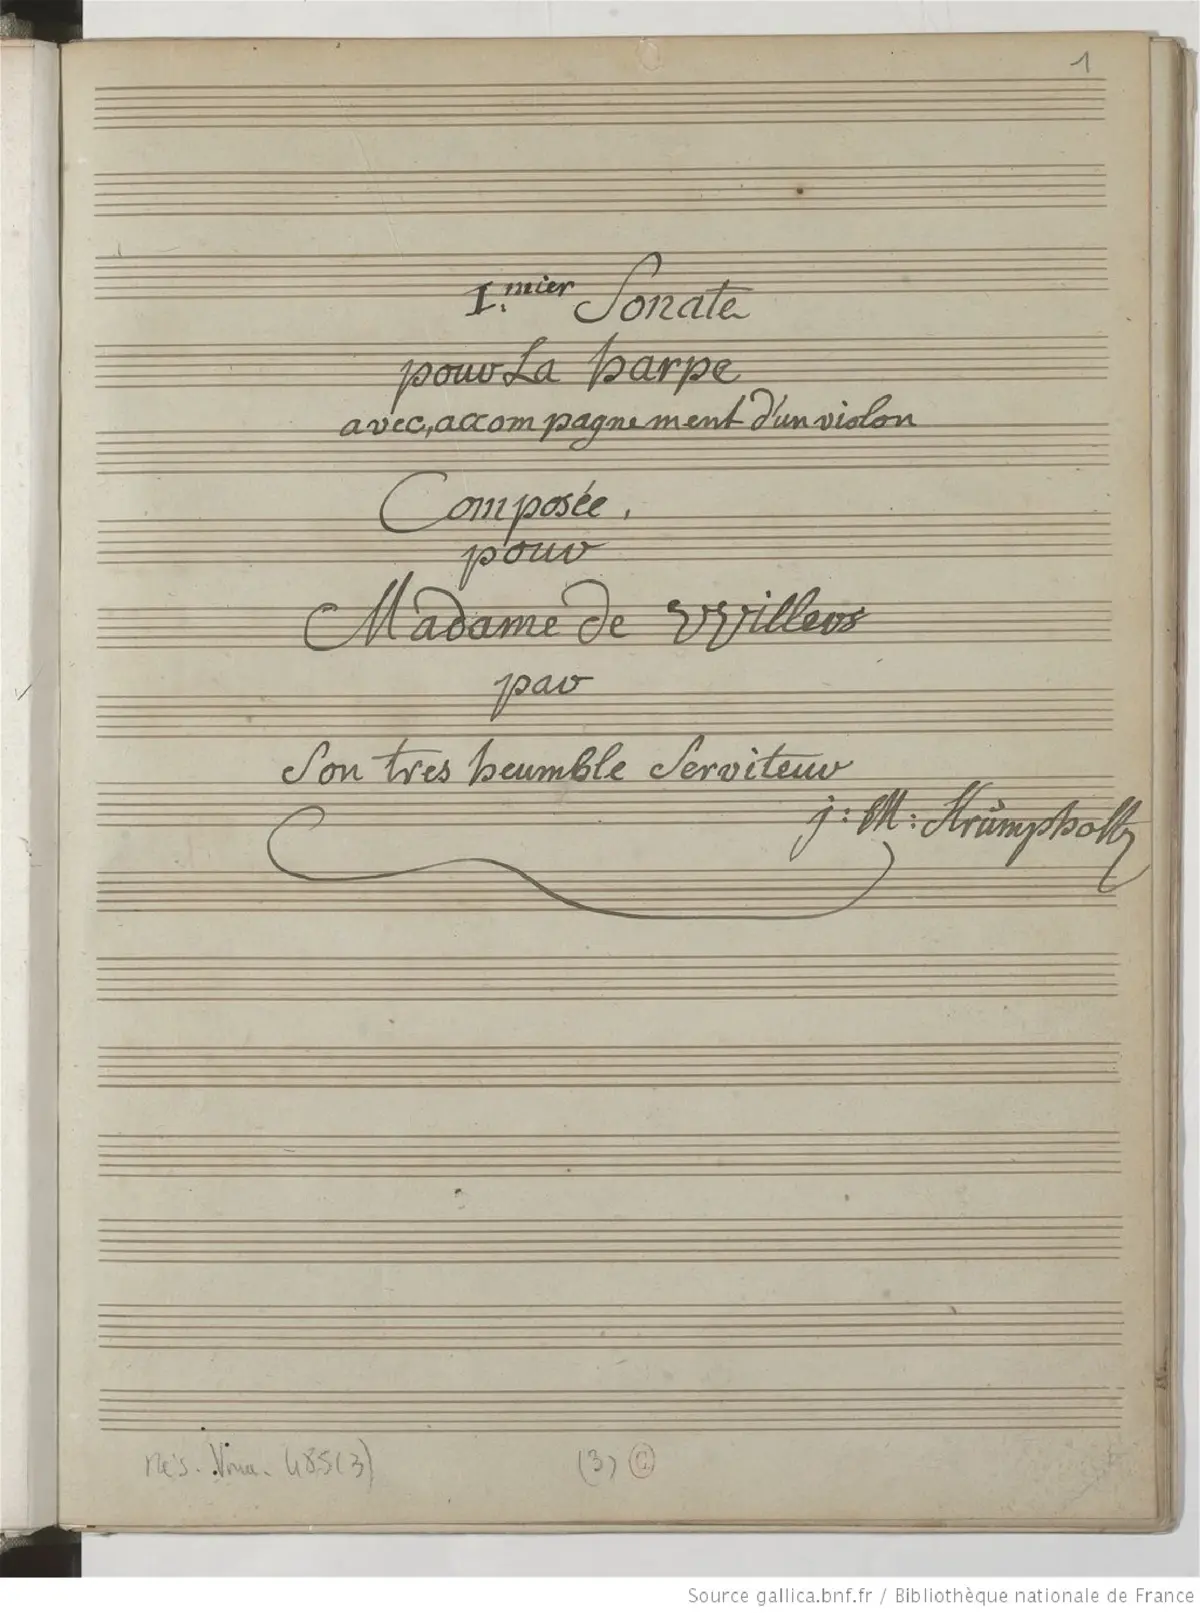 1
I.mier Sonate
pour La harpe
avec, accompagnement d'un violon
Composée,
pour
Madame de VVillers
par
Son tres heumble Serviteur
j: M: Krumpholtz
Rés. Vma. 485(3)
(3) C
Source gallica.bnf.fr / Bibliothèque nationale de France